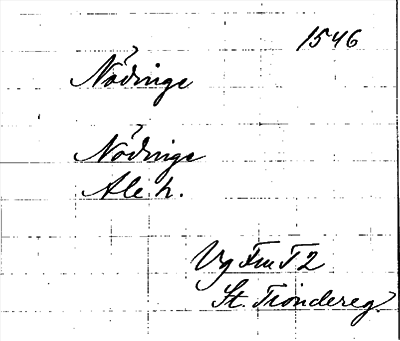 1546
Nödinge
Nödinge
Ale h.
Vg Fru T 2
St. Tiondereg.